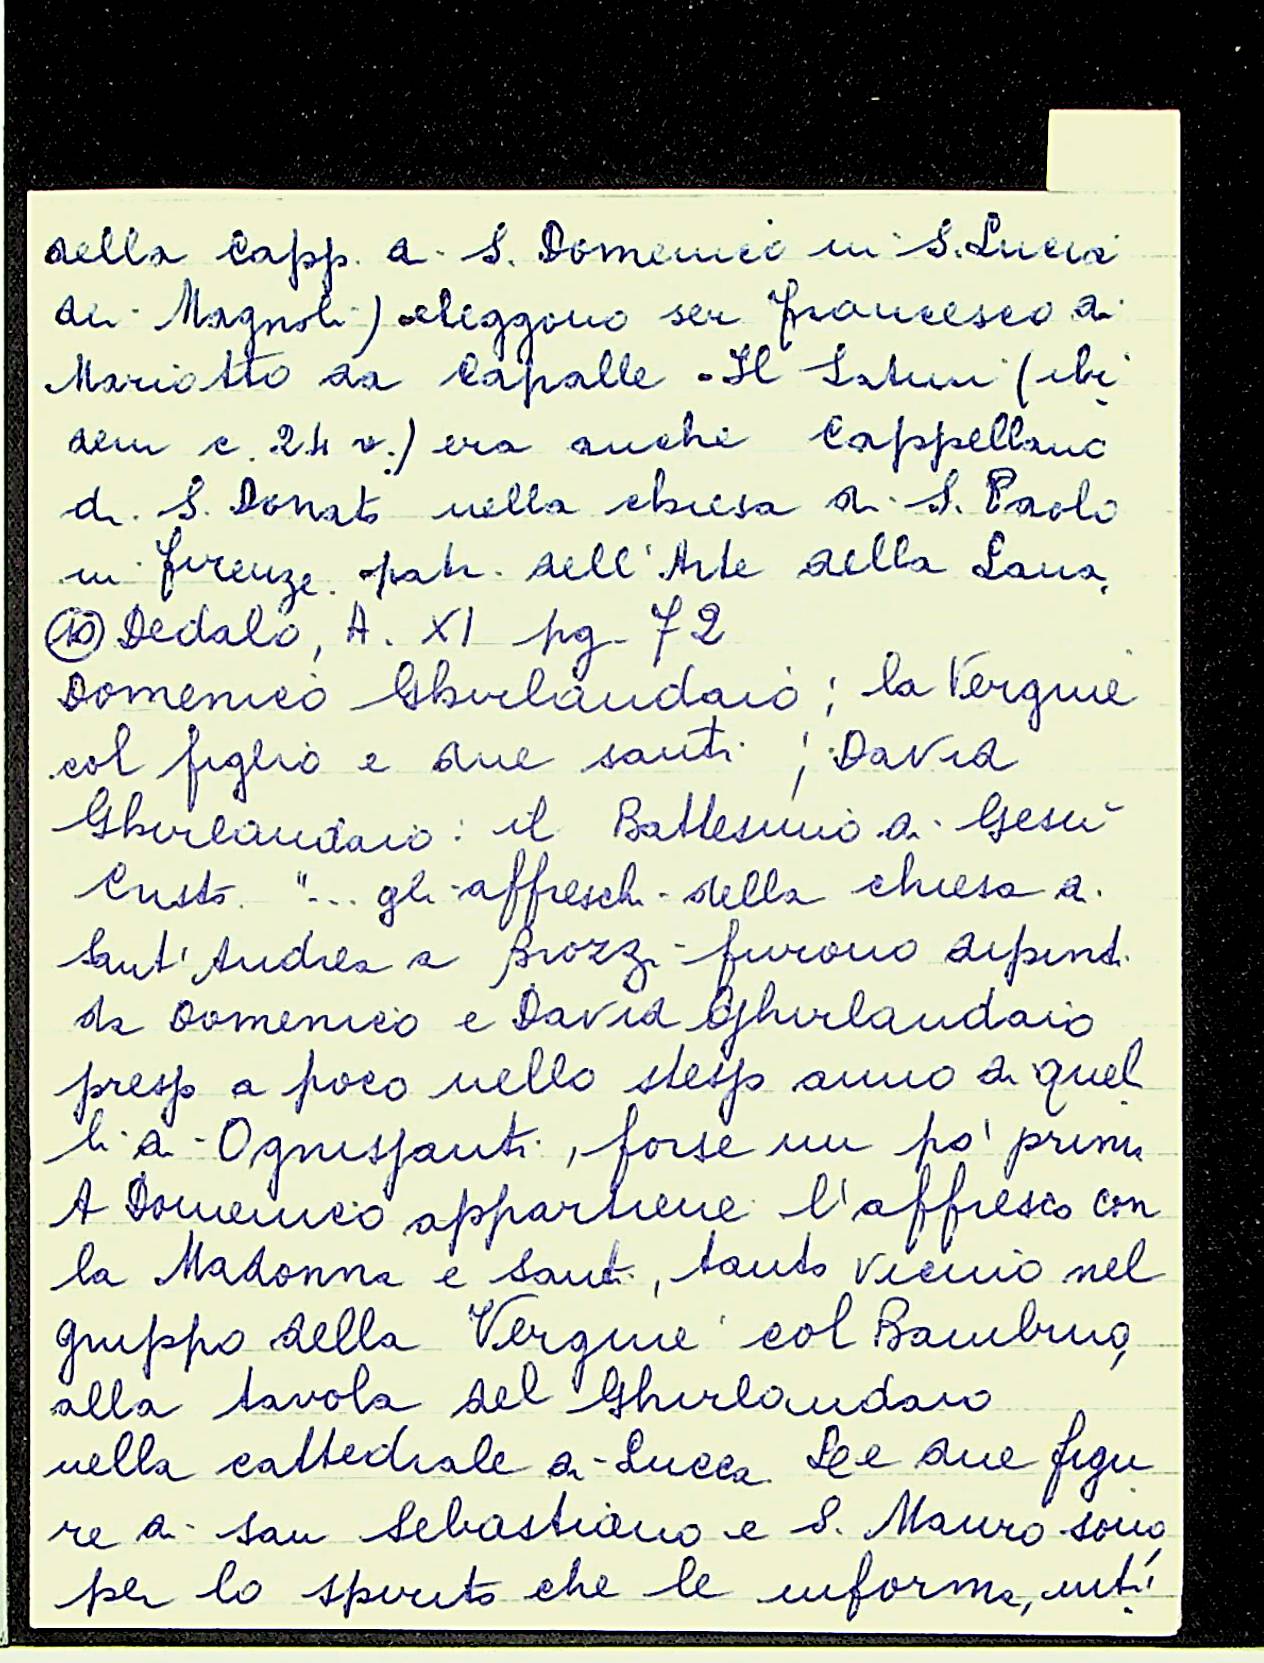 della Capp. di S. Domenico in S. Lucia
dei Magnoli) eleggono ser Francesco di
Mariotto da Capalle. Il (ibi
dem c. 24 v.) era anche Cappellano
di S. Donato nella chiesa di S. Paolo
in Firenze. patr. dell'Arte della Lana.
Dedalo, A. XI pg. 72
Domenico Ghirlandaio; la Vergine
col figlio e due santi; David
Ghirlandaio: il Battesimo di Gesù
Cristo. "... gli affreschi della chiesa di
Sant'Andrea a Brozzi furono dipinti
da Domenico e David Ghirlandaio
presso a poco nello stesso anno di quel
li di Ognissanti, forse un po' prima
A Domenico appartiene l'affresco con
la Madonna e Santi, tanto vicino nel
gruppo della Vergine col Bambino,
alla tavola del Ghirlandaio
nella cattedrale di Lucca. Le due figu
re di San Sebastiano e S. Mauro sono,
per lo spirito che le informa, inti